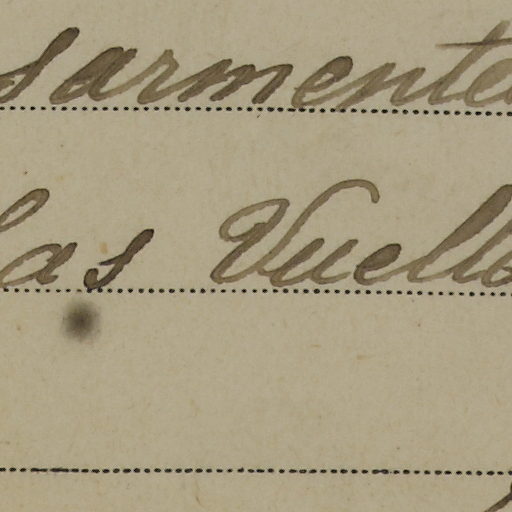 sarmente
las Vuello